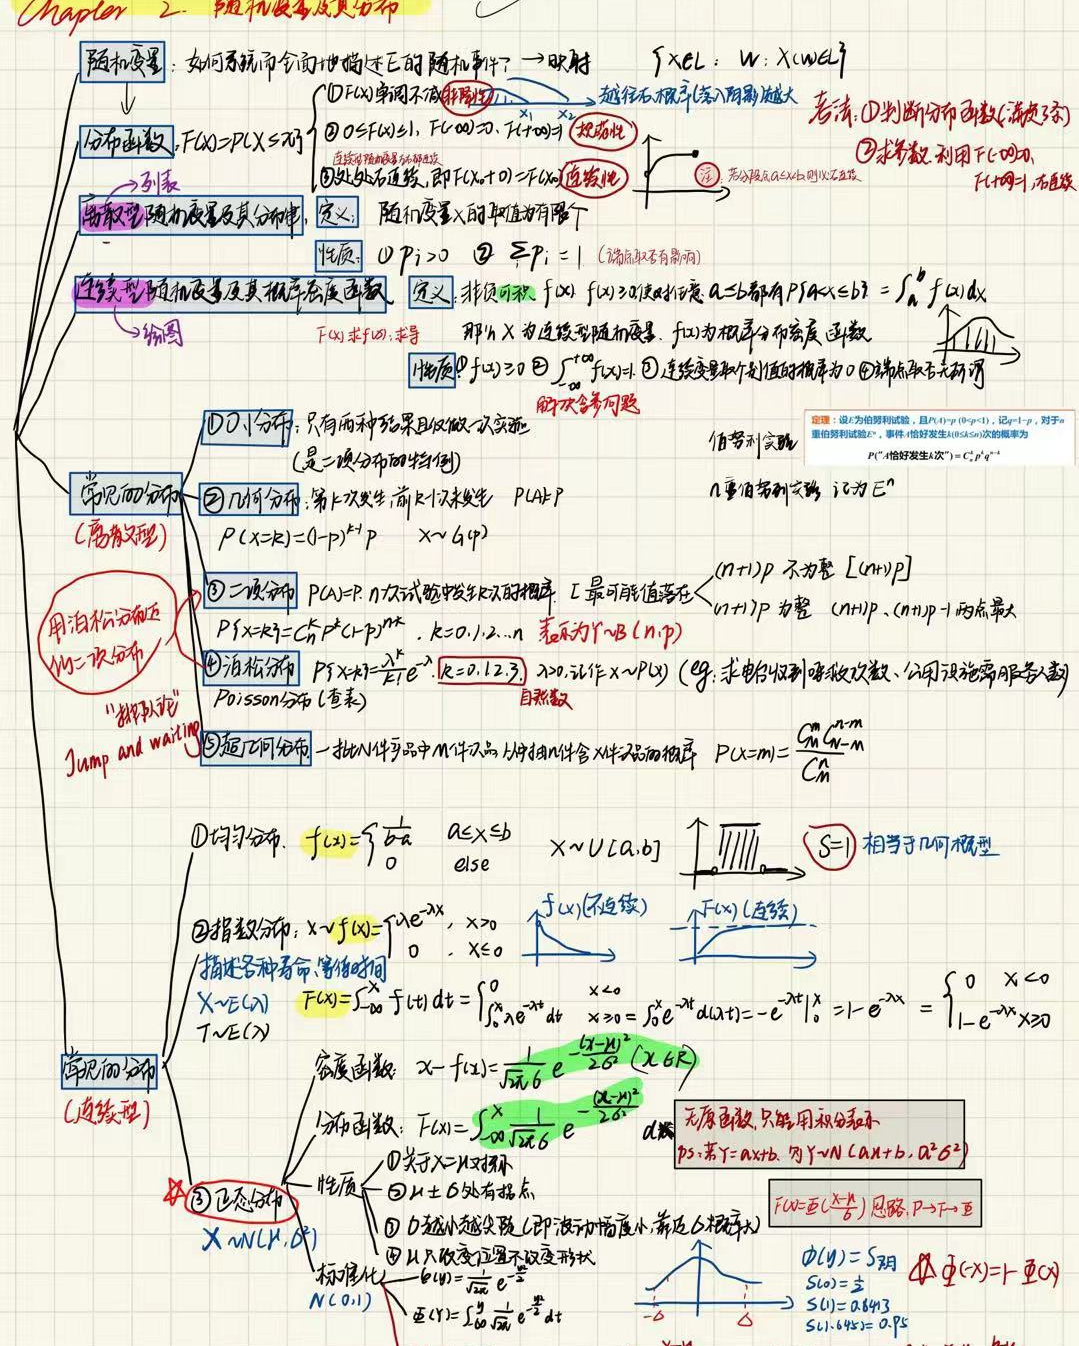 Chapter 2. 随机变量及其分布
随机变量：如何系统而全面地描述E的随机事件？→映射 {X∈L： W：X(W∈L}
①F(x)单调不减 非降性 x₁ x₂ 越往右,概率(落入阴影)越大
分布函数，F(x)=P{X≤x}
②0≤F(x)≤1，F(-∞)=0，F(+∞)=1 规范性
③处处右连续,即F(x₀+0)=F(x₀) 连续性
考法：①判断分布函数(满足3条)
②求参数，利用F(-∞)=0,
F(+∞)=1,右连续
→列表
离散型随机变量及其分布律，定义： 随机变量X的取值为有限个
性质： ①Pi>0 ②ΣPi=1 (端点取否有影响)
连续型随机变量及其概率密度函数 定义：非负可积f(x) f(x)≥0,使对任意a≤b都有P{a<x≤b}=∫ₐᵇf(x)dx
→绘图
F(x)求f(x)：求导
那么X为连续型随机变量，f(x)为概率分布密度函数
性质①f(x)≥0②∫₋∞⁺∞f(x)=1 ③连续变量取个别值的概率为0④端点取否无所谓
解决含参问题
常见的分布
(离散型)
①0-1分布：只有两种结果且仅做一次实验
(是二项分布的特例)
伯努利实验
定理：设E为伯努利试验，且P(A)=p (0<p<1)，记q=1−p，对于n
重伯努利试验Eⁿ，事件A恰好发生k(0≤k≤n)次的概率为
P("A恰好发生k次")=Cₙᵏpᵏqⁿ⁻ᵏ
n重伯努利实验 记为Eⁿ
②几何分布：第k次发生,前k-1次未发生 P(A)=P
P(X=k)=(1-p)ᵏ⁻¹p X~G(p)
③二项分布 P(A)=P. n次试验中发生k次的概率. [最可能值落在
(n+1)p 不为整 [(n+1)p]
(n+1)p 为整 (n+1)p、(n+1)p-1两点最大
P{X=k}=Cₙᵏpᵏ(1-p)ⁿ⁻ᵏ，k=0.1.2...n 表示为Y~B(n,p)
用泊松分布近
似二次分布
④泊松分布 P{X=k}=λᵏ/k! e^-λ. k=0.1.2.3. λ>0.记作X~P(λ) (eg:求电台收到呼救次数、公用设施需服务人数)
自然数
Poisson分布(查表)
"排队论"
Jump and waiting
⑤超几何分布 一批N件产品中M件次品 从中抽n件含X件次品的概率 P(X=m)=
①均匀分布. f(x)={1/(b-a) a≤x≤b
0 else
X~U[a,b] S=1 相当于几何概型
②指数分布：X~f(x)={λe^-λx, x>0
0 . x≤0
f(x)(不连续)
F(x)(连续)
描述各种寿命、等待时间
X~E(λ)
T~E(λ)
F(x)=∫₋∞ˣf(t)dt={0 x<0
∫₀ˣλe^-λt dt x≥0=∫₀ˣe^-λt d(λt)=-e^-λt|₀ˣ=1-e^-λx={0 x<0
1-e^-λx x≥0
常见的分布
(连续型)
③正态分布
X~N(μ,σ²)
密度函数：x~f(x)=1/(√2π σ) e^-(x-μ)²/2σ² (x∈R)
分布函数：F(x)=∫₋∞ˣ 1/(√2π σ) e^-(x-μ)²/2σ² dx
无原函数,只能用积分表示
ps.若Y=ax+b. 则Y~N(aμ+b,a²σ²)
性质
①关于x=μ对称
②μ±σ处有拐点
③σ越小越尖陡(即波动幅度小,靠近σ概率大)
④μ只改变位置不改变形状
F(x)=Φ((x-μ)/σ) 思路：P→F→Φ
标准化
N(0,1)
φ(y)=1/√2π e^-y²/2
Φ(Y)=∫₋∞ʸ 1/√2π e^-y²/2 dt
Φ(y)=S阴
S(0)=½
S(1)=0.8413
S(1.645)=0.95
Φ(-x)=1-Φ(x)